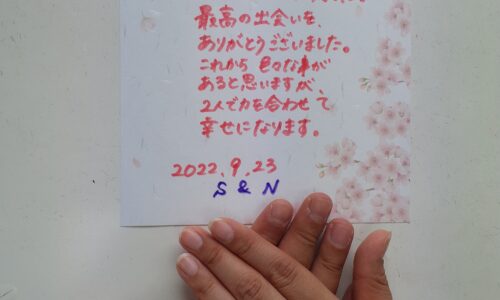 最高の出会いを、
ありがとうございました。
これから 色々な事が
あると思いますが、
2人で力を合わせて
幸せになります。
2022.9.23
S & N